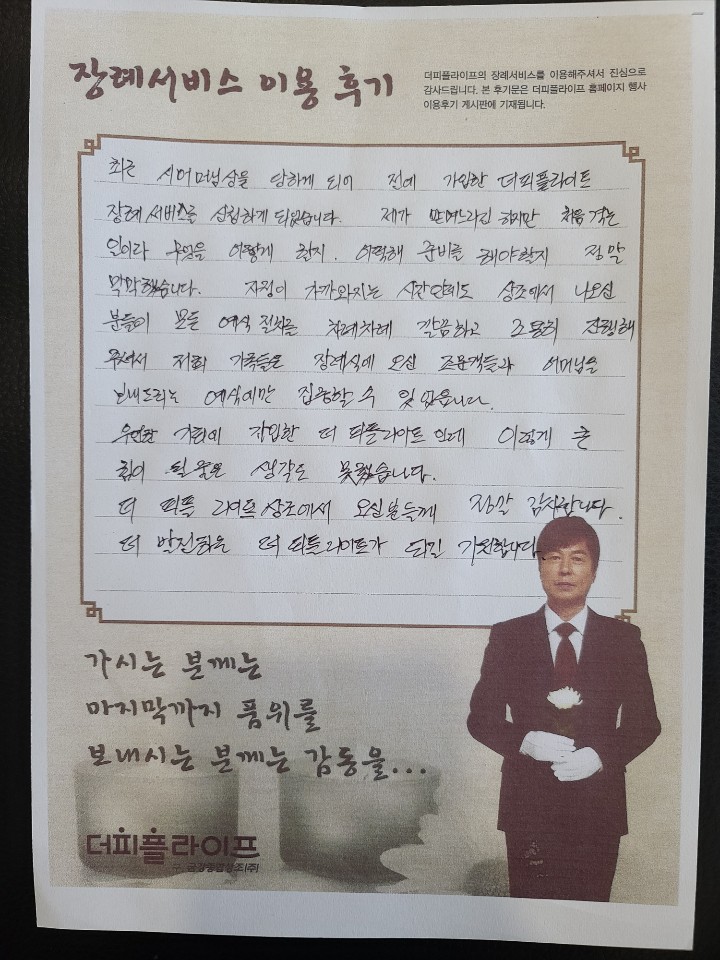 장례서비스 이용 후기
더피플라이프의 장례서비스를 이용해주셔서 진심으로
감사드립니다. 본 후기문은 더피플라이프 홈페이지 행사
이용후기 게시판에 기재됩니다.
최근 시어머님상을 당하게 되어 전에 가입한 더피플라이프
장례서비스를 신청하게 되었습니다. 제가 맏며느리긴 하지만 처음 겪는
일이라 무엇을 어떻게 할지. 어떡해 준비를 해야할지 정말
막막했습니다. 자정이 가까와지는 시간인데도 상조에서 나오신
분들이 모든 예식 절차를 차례차례 깔끔하고 조용히 진행해
주셔서 저희 가족들은 장례식에 오신 조문객들과 어머님을
보내드리는 예식에만 집중할 수 있었습니다.
우연한 기회에 가입한 더 피플라이프 인데 이렇게 큰
힘이 될 줄은 생각도 못했습니다.
더 피플 라이프 상조에서 오신분들께 정말 감사합니다.
더 발전하는 더 피플라이프가 되길 기원합니다
가시는 분께는
마지막까지 품위를
보내시는 분께는 감동을...
더피플라이프
금강종합상조(주)